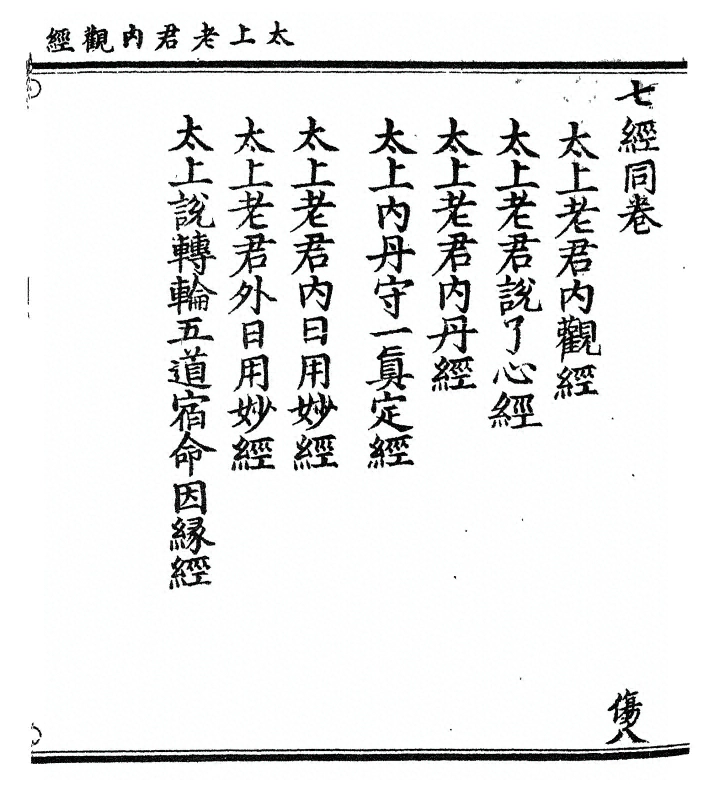 太上老君內觀經
七經同卷
傷八
太上老君內觀經
太上老君說了心經
太上老君內丹經
太上內丹守一眞定經
太上老君內日用妙經
太上老君外日用妙經
太上說轉輪五道宿命因緣經